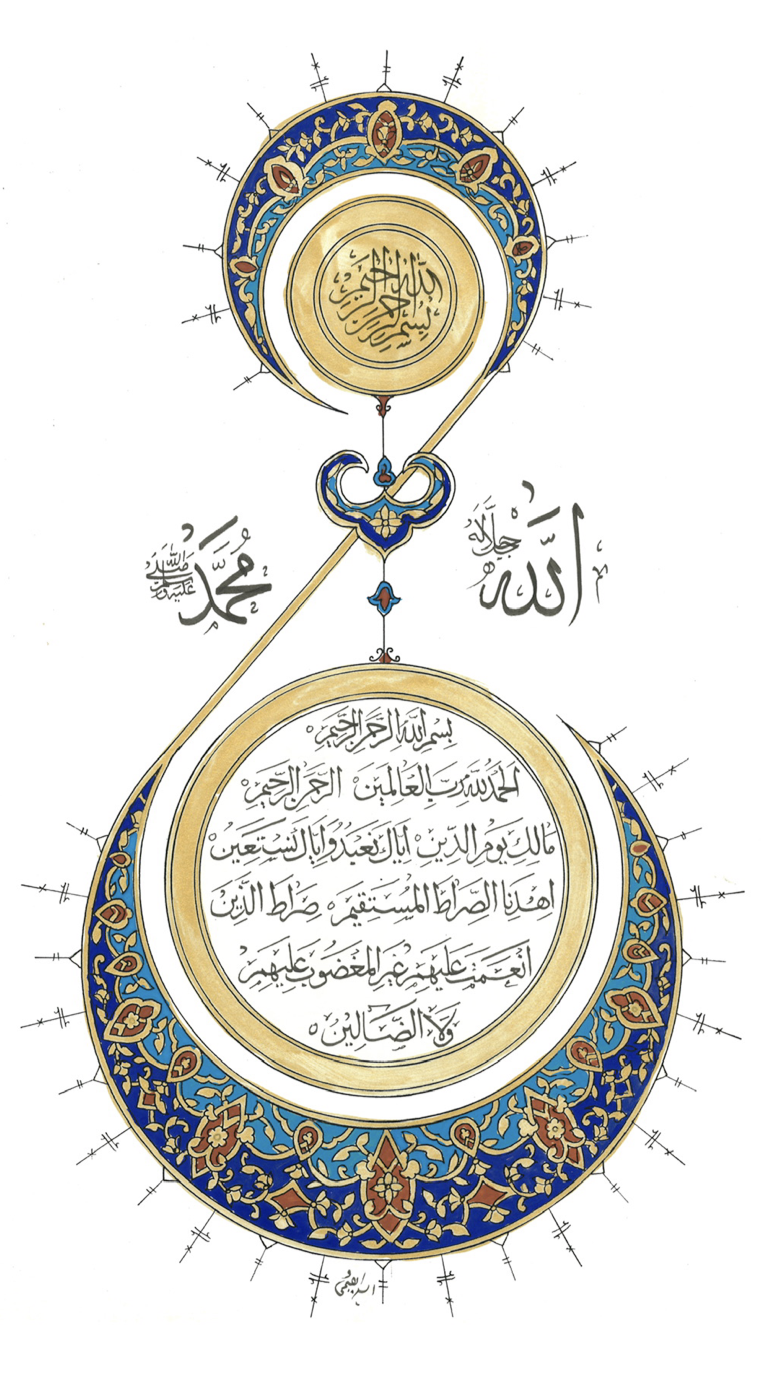 بسم الله الرحمن الرحيم
الله جل جلاله
محمد صلى الله عليه وسلم
بِسْمِ اللَّهِ الرَّحْمَنِ الرَّحِيمِ
الْحَمْدُ لِلَّهِ رَبِّ الْعَالَمِينَ الرَّحْمَنِ الرَّحِيمِ
مَالِكِ يَوْمِ الدِّينِ إِيَّاكَ نَعْبُدُ وَإِيَّاكَ نَسْتَعِينُ
اهْدِنَا الصِّرَاطَ الْمُسْتَقِيمَ صِرَاطَ الَّذِينَ
أَنْعَمْتَ عَلَيْهِمْ غَيْرِ الْمَغْضُوبِ عَلَيْهِمْ
وَلَا الضَّالِّينَ